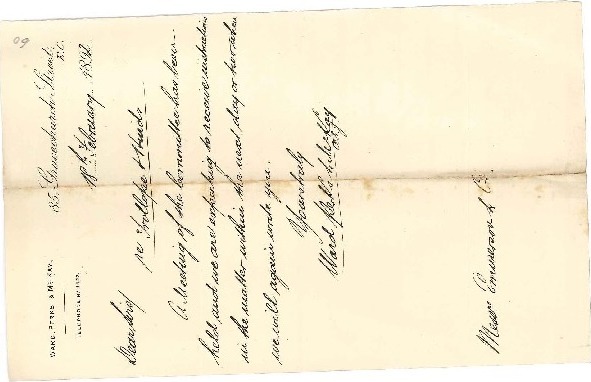 60
WARD, PERKS & McKAY.
TELEPHONE No
85, Gracechurch Street,
E.C.
18th February 1892
Dear Sirs
re Trollope & Hinde
A Meeting of the Committee has been
held, and we are expecting to receive instructions
in the matter within the next day or two when
we will again write you.
Yours truly
Ward Perks & McKay
Messrs Emmerson & Co.